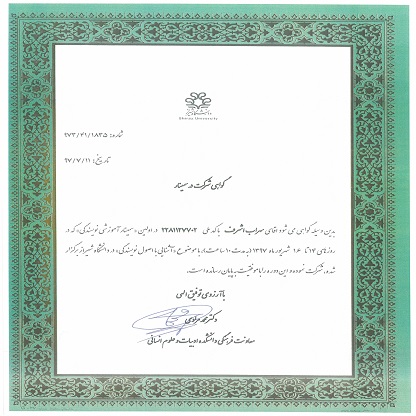 Shiraz University
شماره: ۲۷۳/۴۱/۱۸۳۵
تاریخ: ۹۷/۷/۱۱
گواهی شرکت در سمینار
بدین وسیله گواهی می شود آقای سهراب اشرف با کد ملی ۲۲۸۱۱۲۷۷۰۲ در اولین «سمینار آموزشی نویسندگی» که در
روزهای ۱۴ تا ۱۶ شهریور ماه ۱۳۹۷ (به مدت ۱۰ ساعت) با موضوع «آشنایی با اصول نویسندگی» در دانشگاه شیراز برگزار
شد، شرکت نموده و این دوره را با موفقیت به پایان رسانده است.
با آرزوی توفیق الهی
دکتر محمد مرادی
معاونت فرهنگی دانشکده ادبیات و علوم انسانی